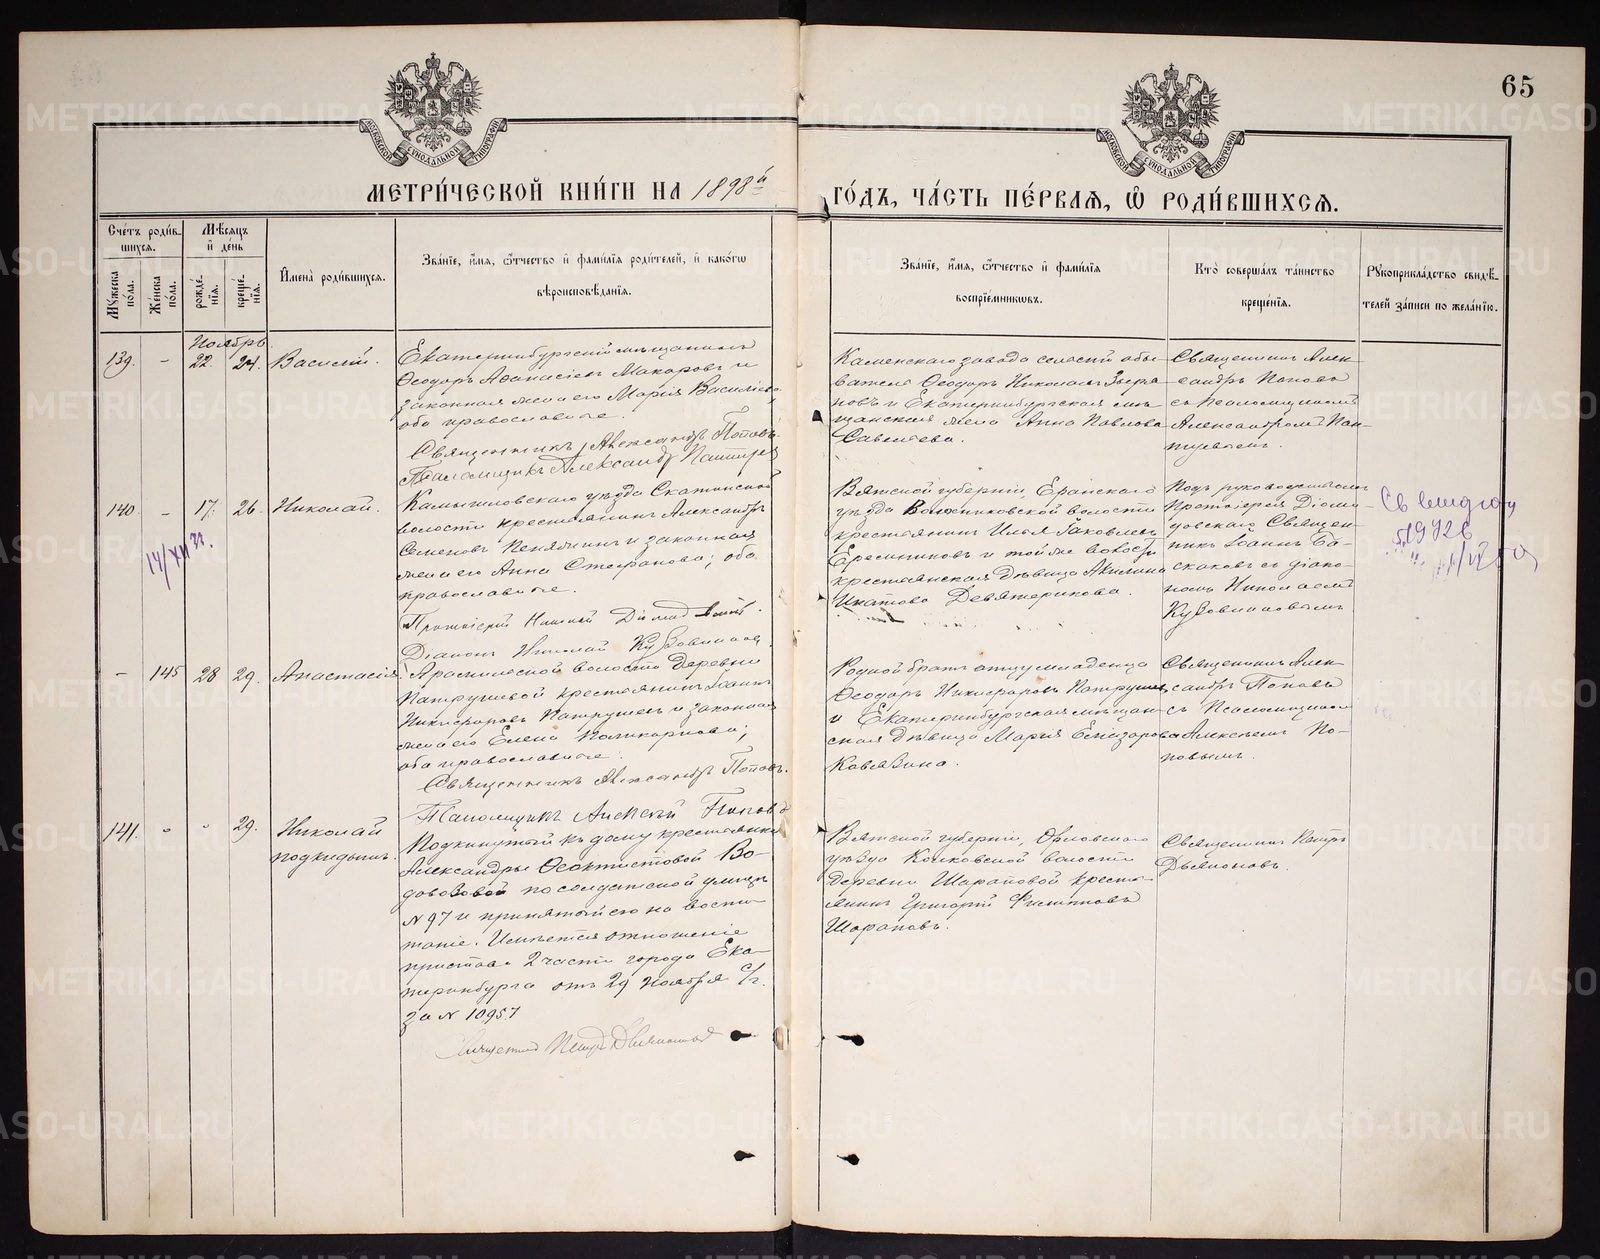 65
МОСКОВСКОЙ СѴНОДАЛЬНОЙ ТИПОГРАФІИ
МОСКОВСКОЙ СѴНОДАЛЬНОЙ ТИПОГРАФІИ
МЕТРИ́ЧЕСКОЙ КНИ́ГИ НА 1898й
ГО́ДЪ, ЧА́СТЬ ПЕ́РВАѦ, Ѡ҆ РОДИ́ВШИХСѦ.
Сче́тъ роди́в-
шихсѧ.
Мꙋ́жеска по́ла.
Же́нска по́ла.
Мѣ́сѧцъ
и҆ де́нь
рожде́-
нїѧ.
креще́-
нїѧ.
И҆мена̀ роди́вшихсѧ.
Зва́нїе, и҆́мѧ, ѻ҆́тчество и҆ фами́лїѧ роди́телей, и҆ како́гѡ
вѣроисповѣ́данїѧ.
Зва́нїе, и҆́мѧ, ѻ҆́тчество и҆ фами́лїѧ
воспрїе́мникѡвъ.
Кто̀ соверша́лъ та́инство
креще́нїѧ.
Рꙋкоприкла́дство свидѣ́-
телей за́писи по жела́нїю.
Ноябрь
139. - 22. 24. Василій.
Екатеринбургскій мѣщанинъ
Ѳеодоръ Аѳанасіевъ Макаровъ и
законная жена его Марія Васильева,
оба православные.
Священникъ Александръ Поповъ.
Псаломщикъ Александръ
Каменскаго завода сельскій обы-
ватель Ѳеодоръ Николаевъ
новъ и Екатеринбургская мѣ-
щанская жена Анна Павлова
Савельева.
Священникъ Алек-
сандръ Поповъ
съ псаломщикомъ
Александромъ Пан-
140. - 17. 26. Николай.
14/XII
Камышловскаго уѣзда Скатинской
волости крестьянинъ Александръ
Семеновъ и законная
жена его Анна Стефанова; оба
православные.
Протоіерей Николай
Діаконъ Николай Кузовниковъ
Вятской губерніи, Яранскаго
уѣзда волости
крестьянинъ Илья Іаковлевъ
и той же волости
крестьянская дѣвица Акилина
Игнатова Девятерикова.
Подъ руководствомъ
Протоіерея Діоми-
довскаго Священ-
никъ Іоаннъ Ба-
скаковъ съ діако-
номъ Николаемъ
Кузовниковымъ
- 145 28 29. Анастасія.
Арамильской волости деревни
Патрушевой крестьянинъ Іоаннъ
Никифоровъ Патрушевъ и законная
жена его Елена Поликарпова;
оба православные.
Священникъ Александръ Поповъ.
Псаломщикъ Алексѣй Поповъ
Родной братъ отцу младенца
Ѳеодоръ Никифоровъ Патрушевъ
и Екатеринбургская мѣщан-
ская дѣвица Марія Елизарова
Ковязина.
Священникъ Алек-
сандръ Поповъ
съ Псаломщикомъ
Алексѣемъ По-
повымъ.
141. - - 29. Николай
подкидышъ.
Подкинутый къ дому крестьянки
Александры Ѳеоктистовой Во-
довозовой по солдатской улицѣ
№ 97 и принятый ею на воспи-
таніе. Имѣется отношеніе
пристава 2 части города Ека-
теринбурга отъ 29 Ноября с/г.
за № 10957
Священникъ Петръ Дьяконовъ
Вятской губерніи, Орловскаго
уѣзда волости
деревни Шараповой кресть-
янинъ Григорій Филипповъ
Шараповъ.
Священникъ Петръ
Дьяконовъ.